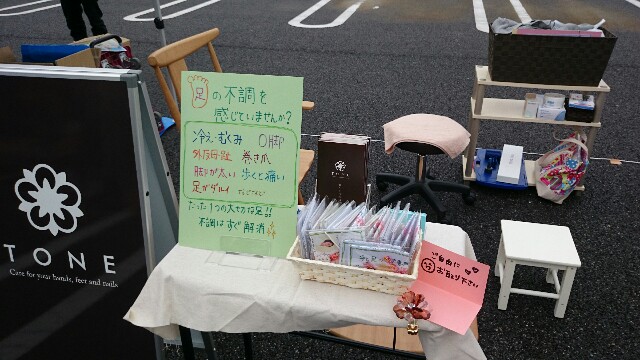 足の不調を
感じていませんか?
冷え・むくみ O脚
外反母趾 巻き爪
脚が太い 歩くと痛い
足がダルイ などなど
たった1つの大せつな足!!
不調はすぐ解消
TONE
Care for your hands, feet and nails
TONE
ご自由に
お取り下さい